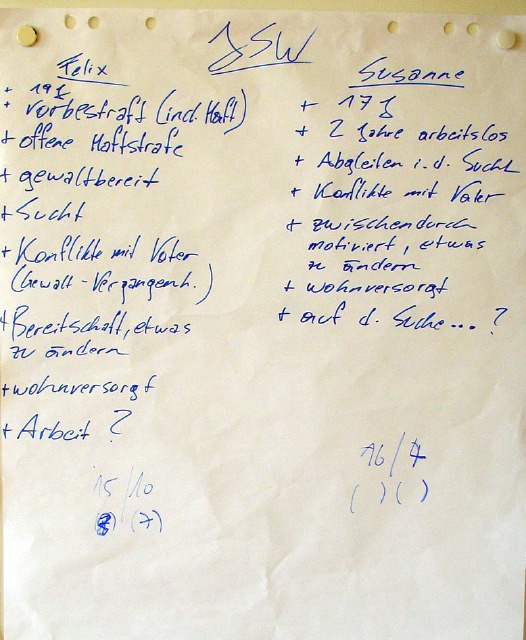 JSW
Felix
+ 19 J
+ vorbestraft (incl. Haft)
+ offene Haftstrafe
+ gewaltbereit
+ Sucht
+ Konflikte mit Vater
(Gewalt-Vergangenh.)
+ Bereitschaft, etwas
zu ändern
+ wohnversorgt
+ Arbeit ?
15/10
(8) (7)
Susanne
+ 17 J
+ 2 Jahre arbeitslos
+ Abgleiten i. d. Sucht
+ Konflikte mit Vater
+ zwischendurch
motiviert, etwas
zu ändern
+ wohnversorgt
+ auf d. Suche... ?
16/4
( ) ( )